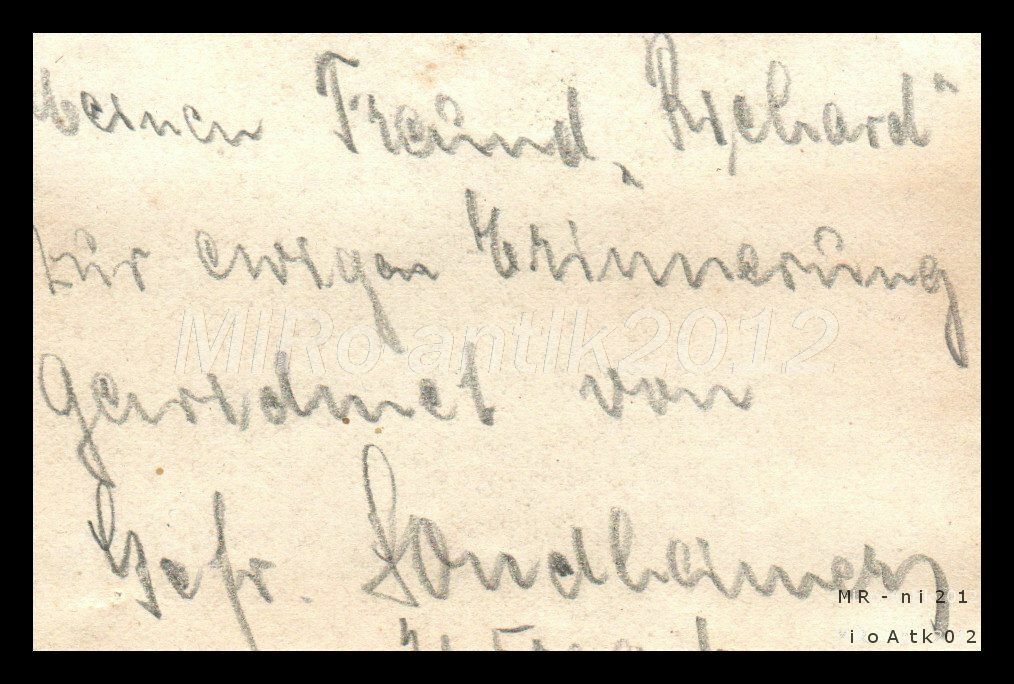 Meinen Freund „Richard"
zur ewigen Erinnerung
MIRo antIk2012
gewidmet von
Gefr.
MR-ni21
ioAtk02